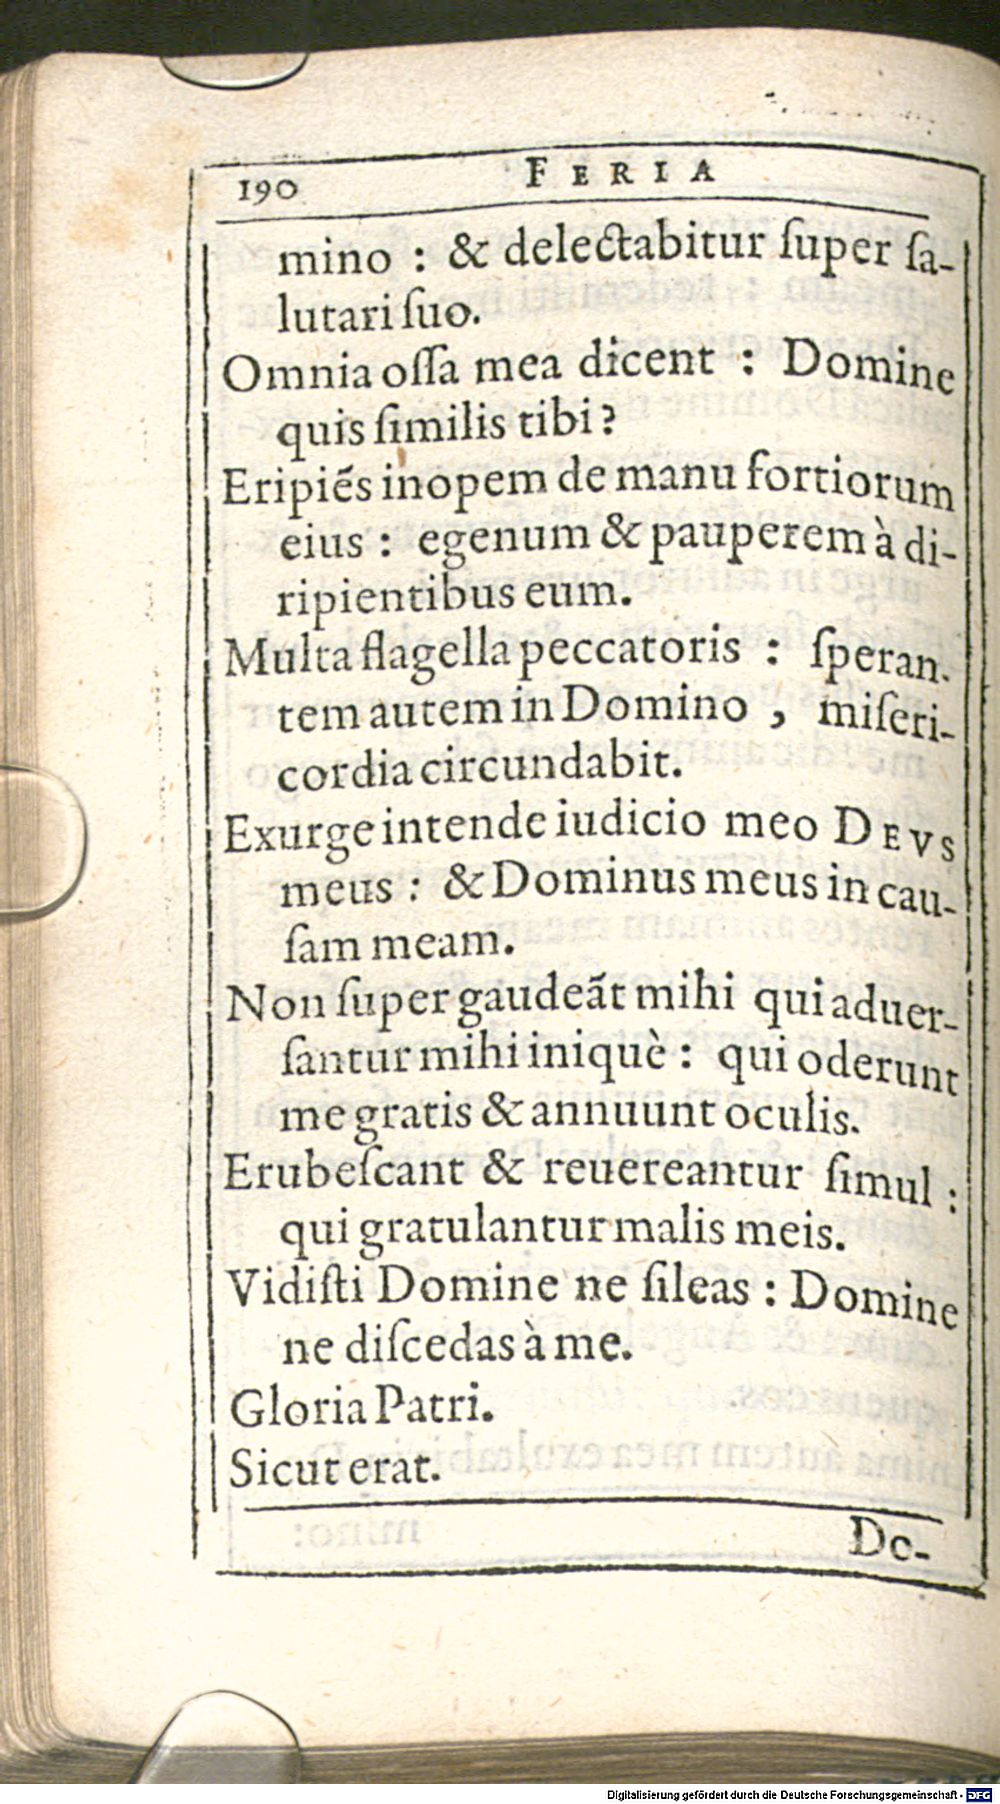 190 FERIA
mino : & delectabitur ſuper ſa-
lutari ſuo.
Omnia oſſa mea dicent : Domine
quis ſimilis tibi?
Eripiẽs inopem de manu fortiorum
eius : egenum & pauperem à di-
ripientibus eum.
Multa flagella peccatoris : ſperan-
tem autem in Domino , miſeri-
cordia circundabit.
Exurge intende iudicio meo DEVS
meus : & Dominus meus in cau-
ſam meam.
Non ſuper gaudeãt mihi qui aduer-
ſantur mihi iniquè : qui oderunt
me gratis & annuunt oculis.
Erubeſcant & reuereantur ſimul :
qui gratulantur malis meis.
Vidiſti Domine ne ſileas : Domine
ne diſcedas à me.
Gloria Patri.
Sicut erat.
Do-
Digitalisierung gefördert durch die Deutsche Forschungsgemeinschaft - DFG